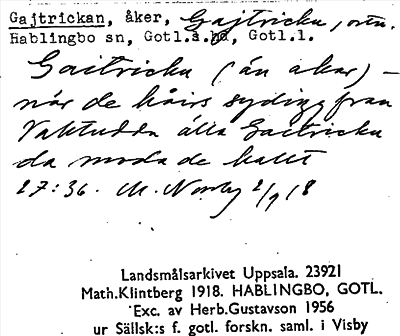 Gajtrickan, åker, Gajtricku, ortn.
Hablingbo sn, Gotl.s.hd, Gotl.l.
Gaitricku (än akar) —
när de håirs syding fran
Vaktudda älla Gaitricku
da moda de kallt
27:36. M. Norby 2/9 18
Landsmålsarkivet Uppsala. 23921
Math.Klintberg 1918. HABLINGBO, GOTL.
Exc. av Herb.Gustavson 1956
ur Sällsk:s f. gotl. forskn. saml. i Visby